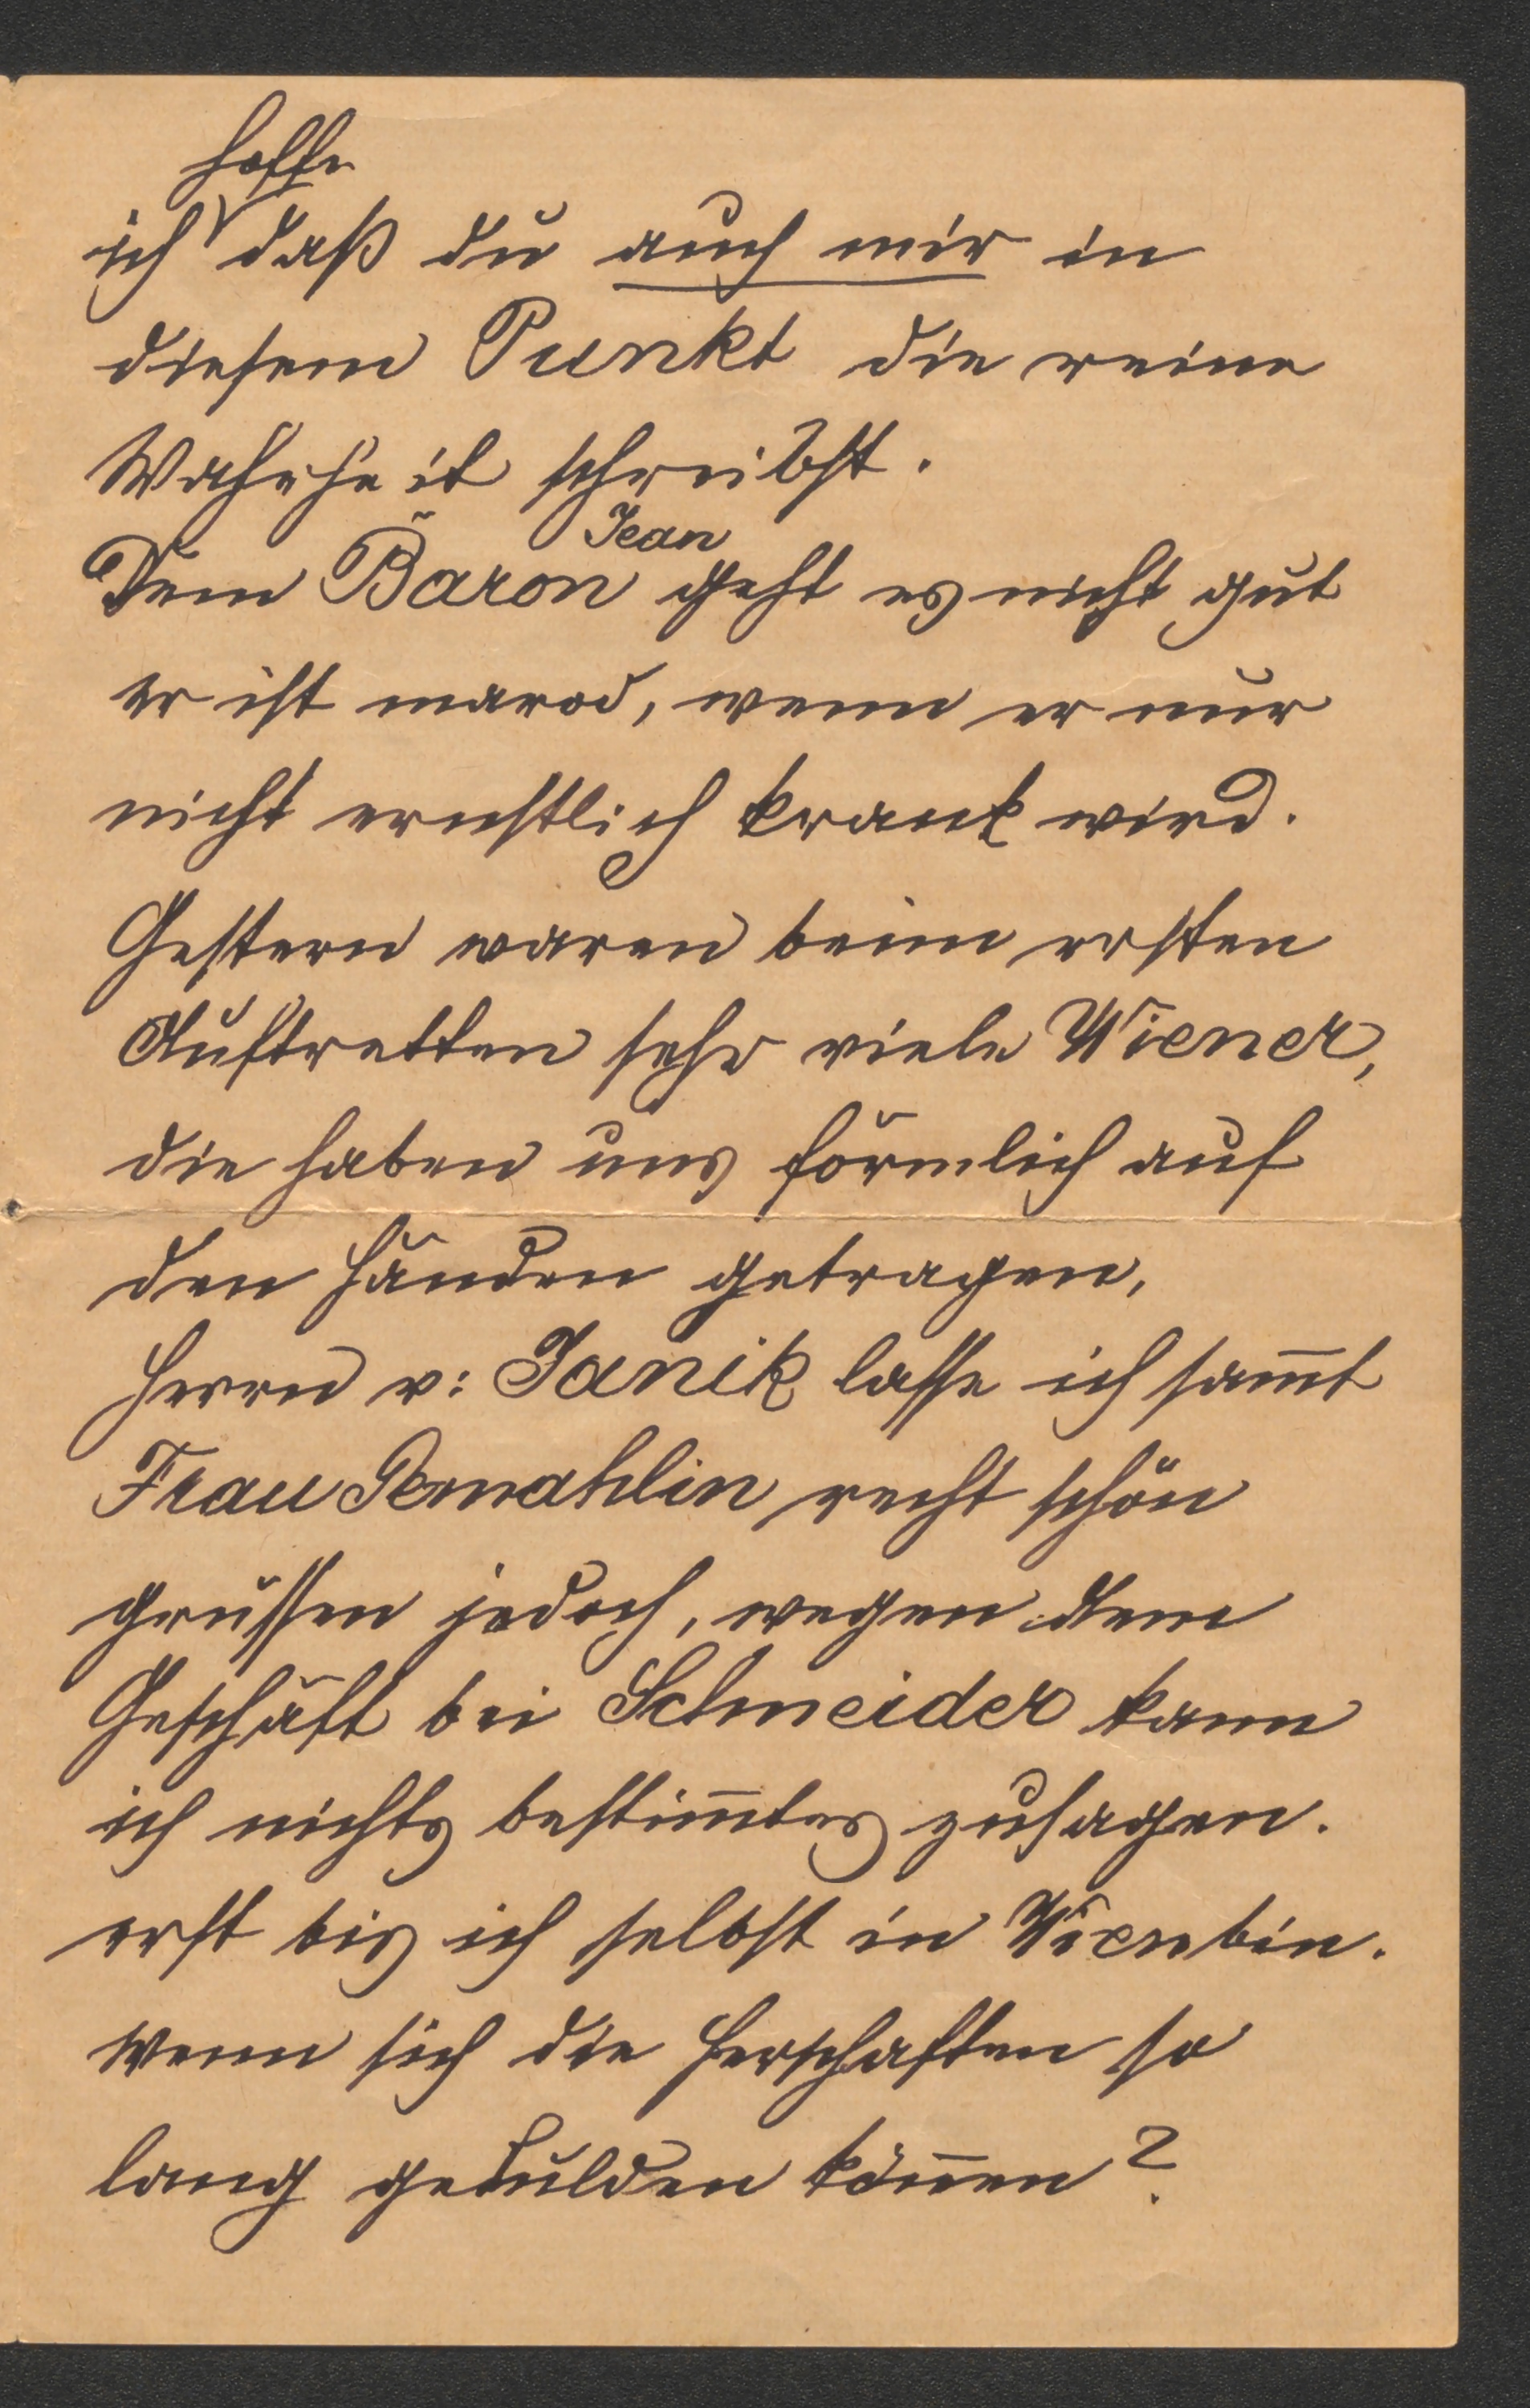 hoffe
ich daß du auch mir in
diesem Punkt die reine
Wahrheit schreibst.
Jean
Dem Baron geht es nicht gut
er ist marod, wenn er nur
nicht ernstlich krank wird.
Gestern waren beim ersten
Auftretten sehr viele Wiener,
die haben uns förmlich auf
den Händen getragen,
Herrn v: Janik lasse ich sam̅t
Frau Gemahlin recht schön
grüssen jedoch, wegen dem
Geschäft bei Schneider kann
ich nichts bestim̅tes zusagen.
erst bis ich selbst in Wien bin.
Wenn sich die Herschaften so
lang gedulden kön̅en?